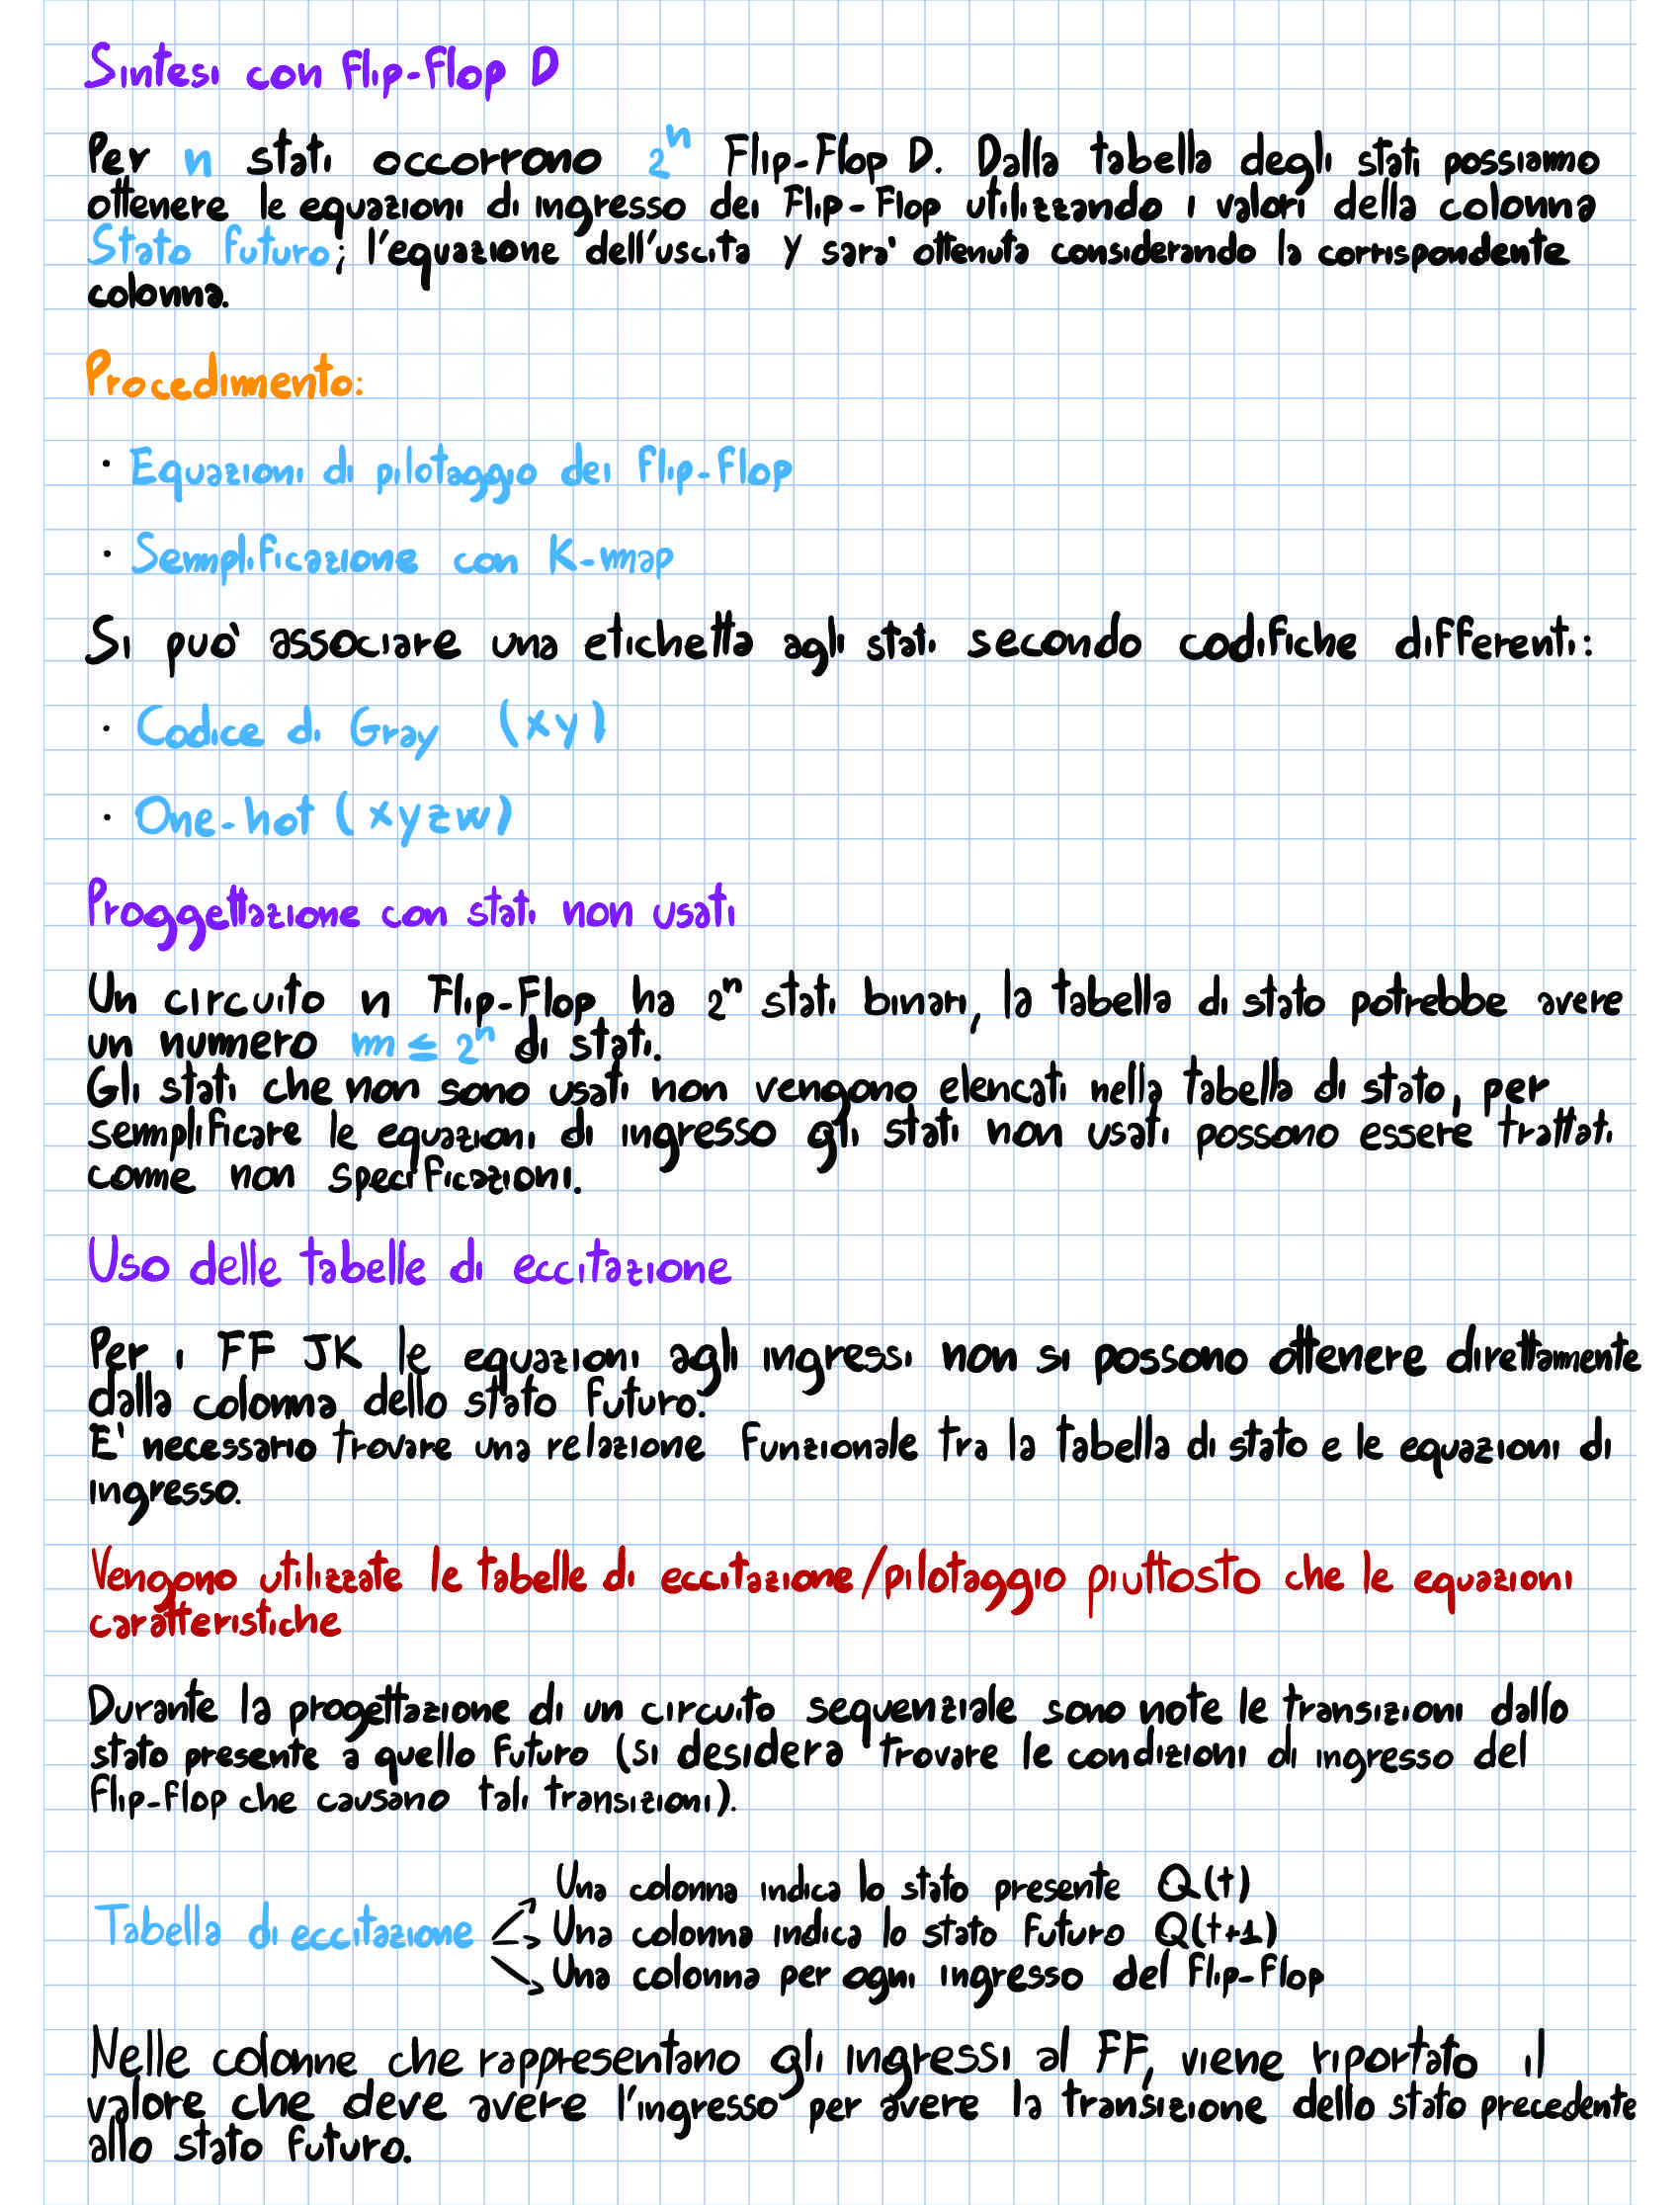 Sintesi con Flip-Flop D
Per n stati occorrono 2^n Flip-Flop D. Dalla tabella degli stati possiamo
ottenere le equazioni di ingresso dei Flip-Flop utilizzando i valori della colonna
Stato futuro; l'equazione dell'uscita y sara' ottenuta considerando la corrispondente
colonna.
Procedimento:
· Equazioni di pilotaggio dei Flip-Flop
· Semplificazione con K-map
Si puo' associare una etichetta agli stati secondo codifiche differenti:
· Codice di Gray (xy)
· One-hot (xyzw)
Proggettazione con stati non usati
Un circuito n Flip-Flop ha 2^n stati binari, la tabella di stato potrebbe avere
un numero m ≤ 2^n di stati.
Gli stati che non sono usati non vengono elencati nella tabella di stato, per
semplificare le equazioni di ingresso gli stati non usati possono essere trattati
come non specificazioni.
Uso delle tabelle di eccitazione
Per i FF JK le equazioni agli ingressi non si possono ottenere direttamente
dalla colonna dello stato futuro.
E' necessario trovare una relazione funzionale tra la tabella di stato e le equazioni di
ingresso.
Vengono utilizzate le tabelle di eccitazione/pilotaggio piuttosto che le equazioni
caratteristiche
Durante la progettazione di un circuito sequenziale sono note le transizioni dallo
stato presente a quello futuro (si desidera trovare le condizioni di ingresso del
Flip-flop che causano tali transizioni).
Una colonna indica lo stato presente Q(t)
Tabella di eccitazione Una colonna indica lo stato futuro Q(t+1)
Una colonna per ogni ingresso del flip-flop
Nelle colonne che rappresentano gli ingressi al FF, viene riportato il
valore che deve avere l'ingresso per avere la transizione dello stato precedente
allo stato futuro.